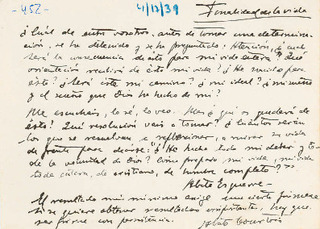 -452-
4/12/39
Finalidad de la vida
¿Cuál de entre vosotros, antes de tomar una determina-
ción, se ha detenido y se ha preguntado: Atención, ¿cuál
será la consecuencia de esto para mi vida entera? ¿Qué
orientación recibirá de esto mi vida? ¿He nacido para
esto? ¿Será este mi camino? ¿mi ideal? ¿
y el sueño que Dios ha hecho de mí?
Me escucháis, lo sé, lo veo. Mas ¿qué os quedará de
esto? Qué resolución vais a tomar? ¿Cuántos serán
los que se resuelvan a reflexionar, a mirar su vida
de frente para decirse: ¿He hecho todo mi deber y to-
da la voluntad de Dios? ¿Cómo preparo mi vida, mi vida
de cristiano, de hombre completo?"
El resultado más mínimo exige una cierta firmeza
si se quiere obtener resultados importantes, hay que
con persistencia.